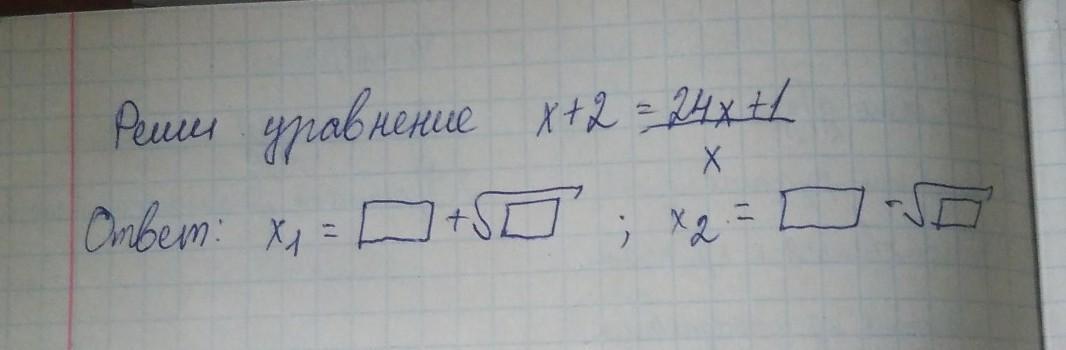 Реши уравнение x+2 = 24x+1
x
Ответ: x₁ = □ + √□ ; x₂ = □ - √□